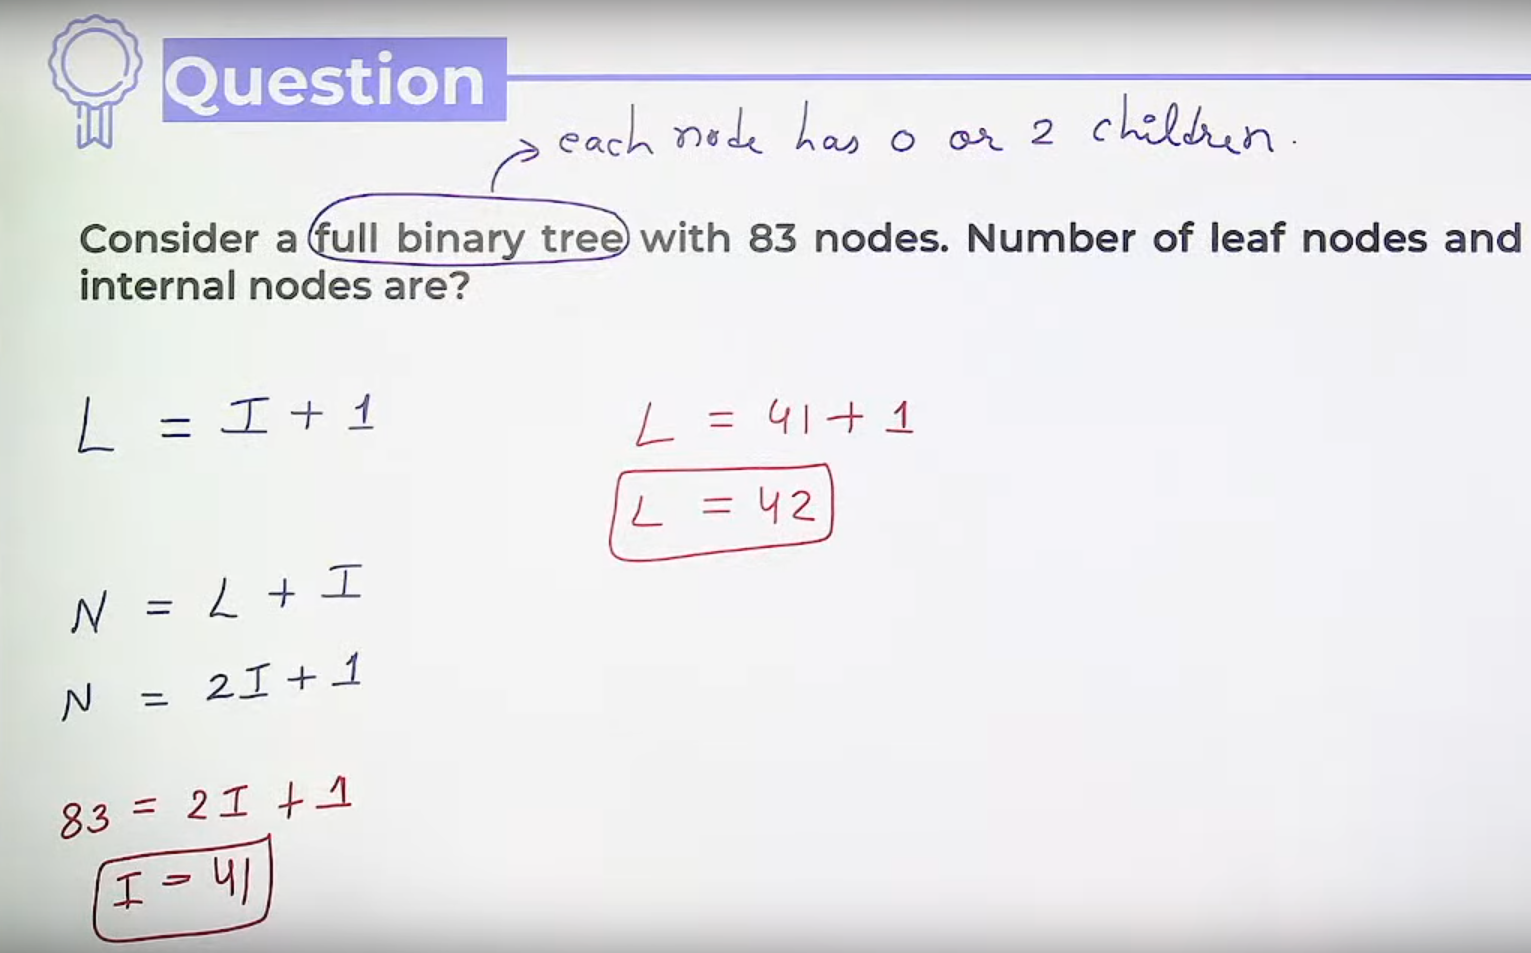 Question
each node has 0 or 2 children.
Consider a full binary tree with 83 nodes. Number of leaf nodes and
internal nodes are?
L = I + 1
N = L + I
N = 2I + 1
83 = 2I + 1
I = 41
L = 41 + 1
L = 42